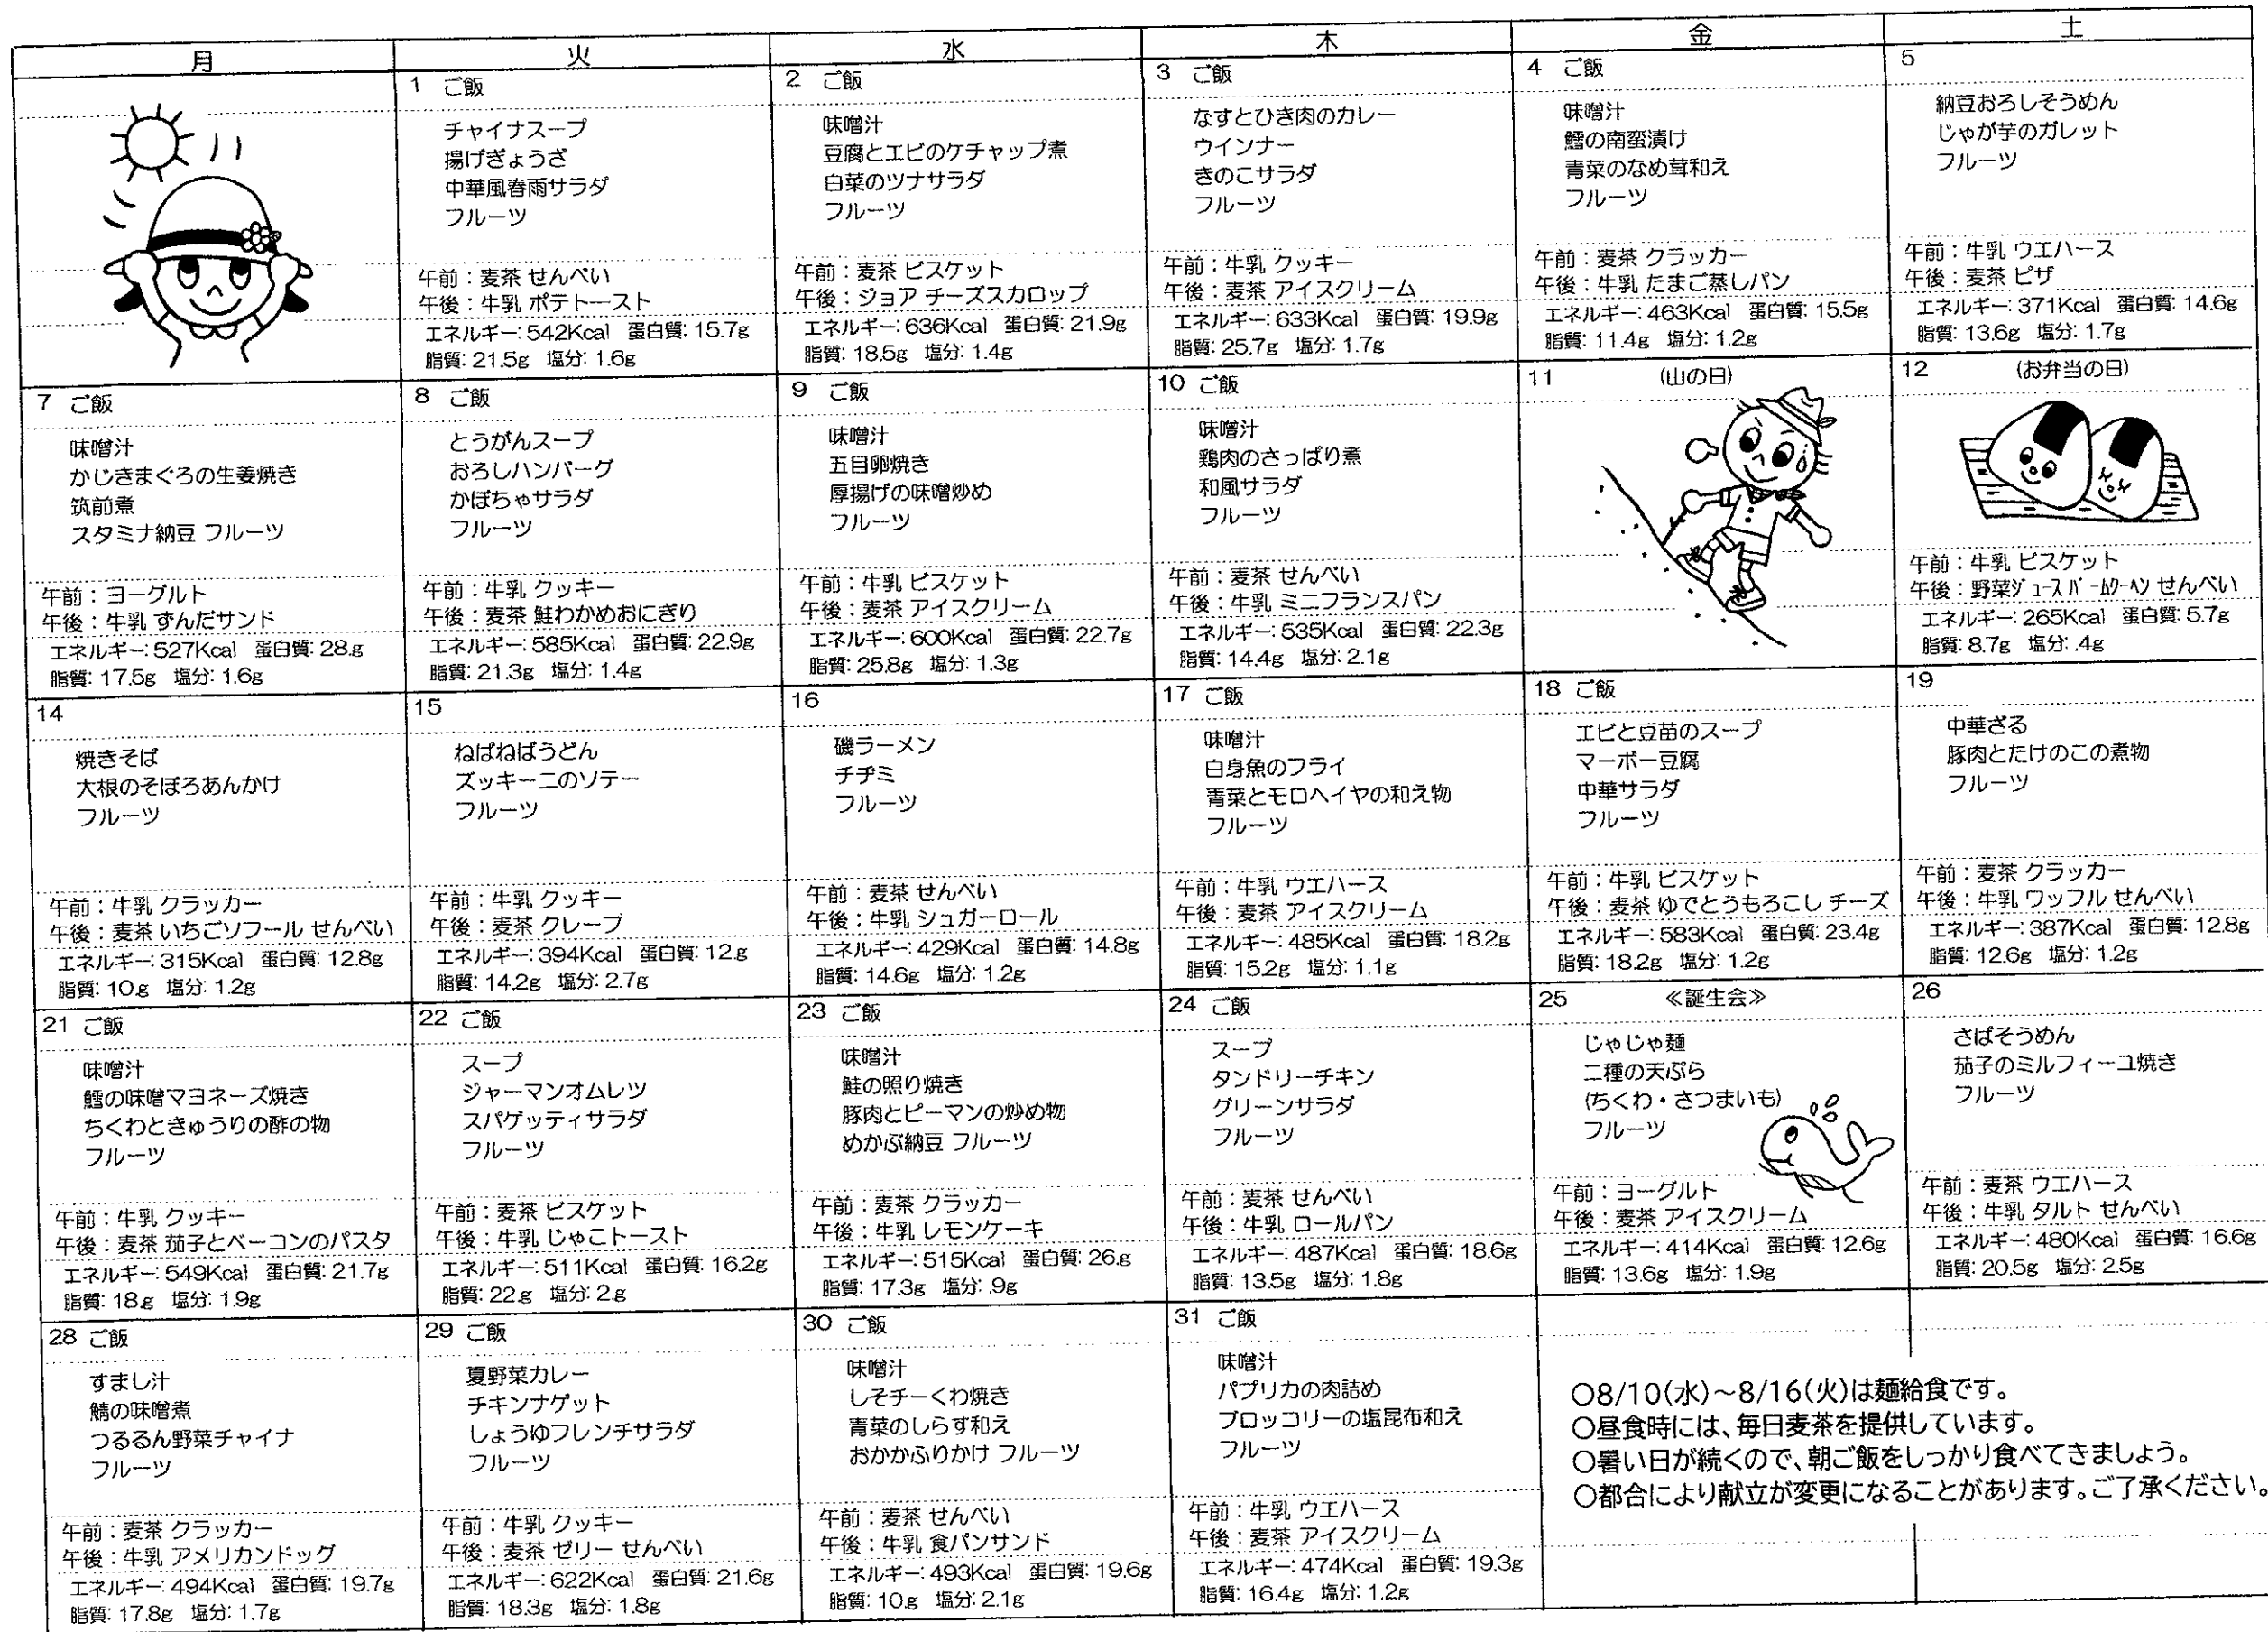 月 火 水 木 金 土
1 ご飯
チャイナスープ
揚げぎょうざ
中華風春雨サラダ
フルーツ
午前：麦茶 せんべい
午後：牛乳 ポテトースト
エネルギー：542Kcal 蛋白質：15.7g
脂質：21.5g 塩分：1.6g
2 ご飯
味噌汁
豆腐とエビのケチャップ煮
白菜のツナサラダ
フルーツ
午前：麦茶 ビスケット
午後：ジョア チーズスカロップ
エネルギー：636Kcal 蛋白質：21.9g
脂質：18.5g 塩分：1.4g
3 ご飯
なすとひき肉のカレー
ウインナー
きのこサラダ
フルーツ
午前：牛乳 クッキー
午後：麦茶 アイスクリーム
エネルギー：633Kcal 蛋白質：19.9g
脂質：25.7g 塩分：1.7g
4 ご飯
味噌汁
鱈の南蛮漬け
青菜のなめ茸和え
フルーツ
午前：麦茶 クラッカー
午後：牛乳 たまご蒸しパン
エネルギー：463Kcal 蛋白質：15.5g
脂質：11.4g 塩分：1.2g
5
納豆おろしそうめん
じゃが芋のガレット
フルーツ
午前：牛乳 ウエハース
午後：麦茶 ピザ
エネルギー：371Kcal 蛋白質：14.6g
脂質：13.6g 塩分：1.7g
7 ご飯
味噌汁
かじきまぐろの生姜焼き
筑前煮
スタミナ納豆 フルーツ
午前：ヨーグルト
午後：牛乳 ずんだサンド
エネルギー：527Kcal 蛋白質：28.g
脂質：17.5g 塩分：1.6g
8 ご飯
とうがんスープ
おろしハンバーグ
かぼちゃサラダ
フルーツ
午前：牛乳 クッキー
午後：麦茶 鮭わかめおにぎり
エネルギー：585Kcal 蛋白質：22.9g
脂質：21.3g 塩分：1.4g
9 ご飯
味噌汁
五目卵焼き
厚揚げの味噌炒め
フルーツ
午前：牛乳 ビスケット
午後：麦茶 アイスクリーム
エネルギー：600Kcal 蛋白質：22.7g
脂質：25.8g 塩分：1.3g
10 ご飯
味噌汁
鶏肉のさっぱり煮
和風サラダ
フルーツ
午前：麦茶 せんべい
午後：牛乳 ミニフランスパン
エネルギー：535Kcal 蛋白質：22.3g
脂質：14.4g 塩分：2.1g
11 (山の日)
12 (お弁当の日)
午前：牛乳 ビスケット
午後：野菜ジュース バームクーヘン せんべい
エネルギー：265Kcal 蛋白質：5.7g
脂質：8.7g 塩分：.4g
14
焼きそば
大根のそぼろあんかけ
フルーツ
午前：牛乳 クラッカー
午後：麦茶 いちごソフール せんべい
エネルギー：315Kcal 蛋白質：12.8g
脂質：10.g 塩分：1.2g
15
ねばねばうどん
ズッキーニのソテー
フルーツ
午前：牛乳 クッキー
午後：麦茶 クレープ
エネルギー：394Kcal 蛋白質：12.g
脂質：14.2g 塩分：2.7g
16
磯ラーメン
チヂミ
フルーツ
午前：麦茶 せんべい
午後：牛乳 シュガーロール
エネルギー：429Kcal 蛋白質：14.8g
脂質：14.6g 塩分：1.2g
17 ご飯
味噌汁
白身魚のフライ
青菜とモロヘイヤの和え物
フルーツ
午前：牛乳 ウエハース
午後：麦茶 アイスクリーム
エネルギー：485Kcal 蛋白質：18.2g
脂質：15.2g 塩分：1.1g
18 ご飯
エビと豆苗のスープ
マーボー豆腐
中華サラダ
フルーツ
午前：牛乳 ビスケット
午後：麦茶 ゆでとうもろこし チーズ
エネルギー：583Kcal 蛋白質：23.4g
脂質：18.2g 塩分：1.2g
19
中華ざる
豚肉とたけのこの煮物
フルーツ
午前：麦茶 クラッカー
午後：牛乳 ワッフル せんべい
エネルギー：387Kcal 蛋白質：12.8g
脂質：12.6g 塩分：1.2g
21 ご飯
味噌汁
鱈の味噌マヨネーズ焼き
ちくわときゅうりの酢の物
フルーツ
午前：牛乳 クッキー
午後：麦茶 茄子とベーコンのパスタ
エネルギー：549Kcal 蛋白質：21.7g
脂質：18.g 塩分：1.9g
22 ご飯
スープ
ジャーマンオムレツ
スパゲッティサラダ
フルーツ
午前：麦茶 ビスケット
午後：牛乳 じゃこトースト
エネルギー：511Kcal 蛋白質：16.2g
脂質：22.g 塩分：2.g
23 ご飯
味噌汁
鮭の照り焼き
豚肉とピーマンの炒め物
めかぶ納豆 フルーツ
午前：麦茶 クラッカー
午後：牛乳 レモンケーキ
エネルギー：515Kcal 蛋白質：26.g
脂質：17.3g 塩分：.9g
24 ご飯
スープ
タンドリーチキン
グリーンサラダ
フルーツ
午前：麦茶 せんべい
午後：牛乳 ロールパン
エネルギー：487Kcal 蛋白質：18.6g
脂質：13.5g 塩分：1.8g
25 ≪誕生会≫
じゃじゃ麺
二種の天ぷら
(ちくわ・さつまいも)
フルーツ
午前：ヨーグルト
午後：麦茶 アイスクリーム
エネルギー：414Kcal 蛋白質：12.6g
脂質：13.6g 塩分：1.9g
26
さばそうめん
茄子のミルフィーユ焼き
フルーツ
午前：麦茶 ウエハース
午後：牛乳 タルト せんべい
エネルギー：480Kcal 蛋白質：16.6g
脂質：20.5g 塩分：2.5g
28 ご飯
すまし汁
鯖の味噌煮
つるるん野菜チャイナ
フルーツ
午前：麦茶 クラッカー
午後：牛乳 アメリカンドッグ
エネルギー：494Kcal 蛋白質：19.7g
脂質：17.8g 塩分：1.7g
29 ご飯
夏野菜カレー
チキンナゲット
しょうゆフレンチサラダ
フルーツ
午前：牛乳 クッキー
午後：麦茶 ゼリー せんべい
エネルギー：622Kcal 蛋白質：21.6g
脂質：18.3g 塩分：1.8g
30 ご飯
味噌汁
しそチーくわ焼き
青菜のしらす和え
おかかふりかけ フルーツ
午前：麦茶 せんべい
午後：牛乳 食パンサンド
エネルギー：493Kcal 蛋白質：19.6g
脂質：10.g 塩分：2.1g
31 ご飯
味噌汁
パプリカの肉詰め
ブロッコリーの塩昆布和え
フルーツ
午前：牛乳 ウエハース
午後：麦茶 アイスクリーム
エネルギー：474Kcal 蛋白質：19.3g
脂質：16.4g 塩分：1.2g
○8/10(水)～8/16(火)は麺給食です。
○昼食時には、毎日麦茶を提供しています。
○暑い日が続くので、朝ご飯をしっかり食べてきましょう。
○都合により献立が変更になることがあります。ご了承ください。